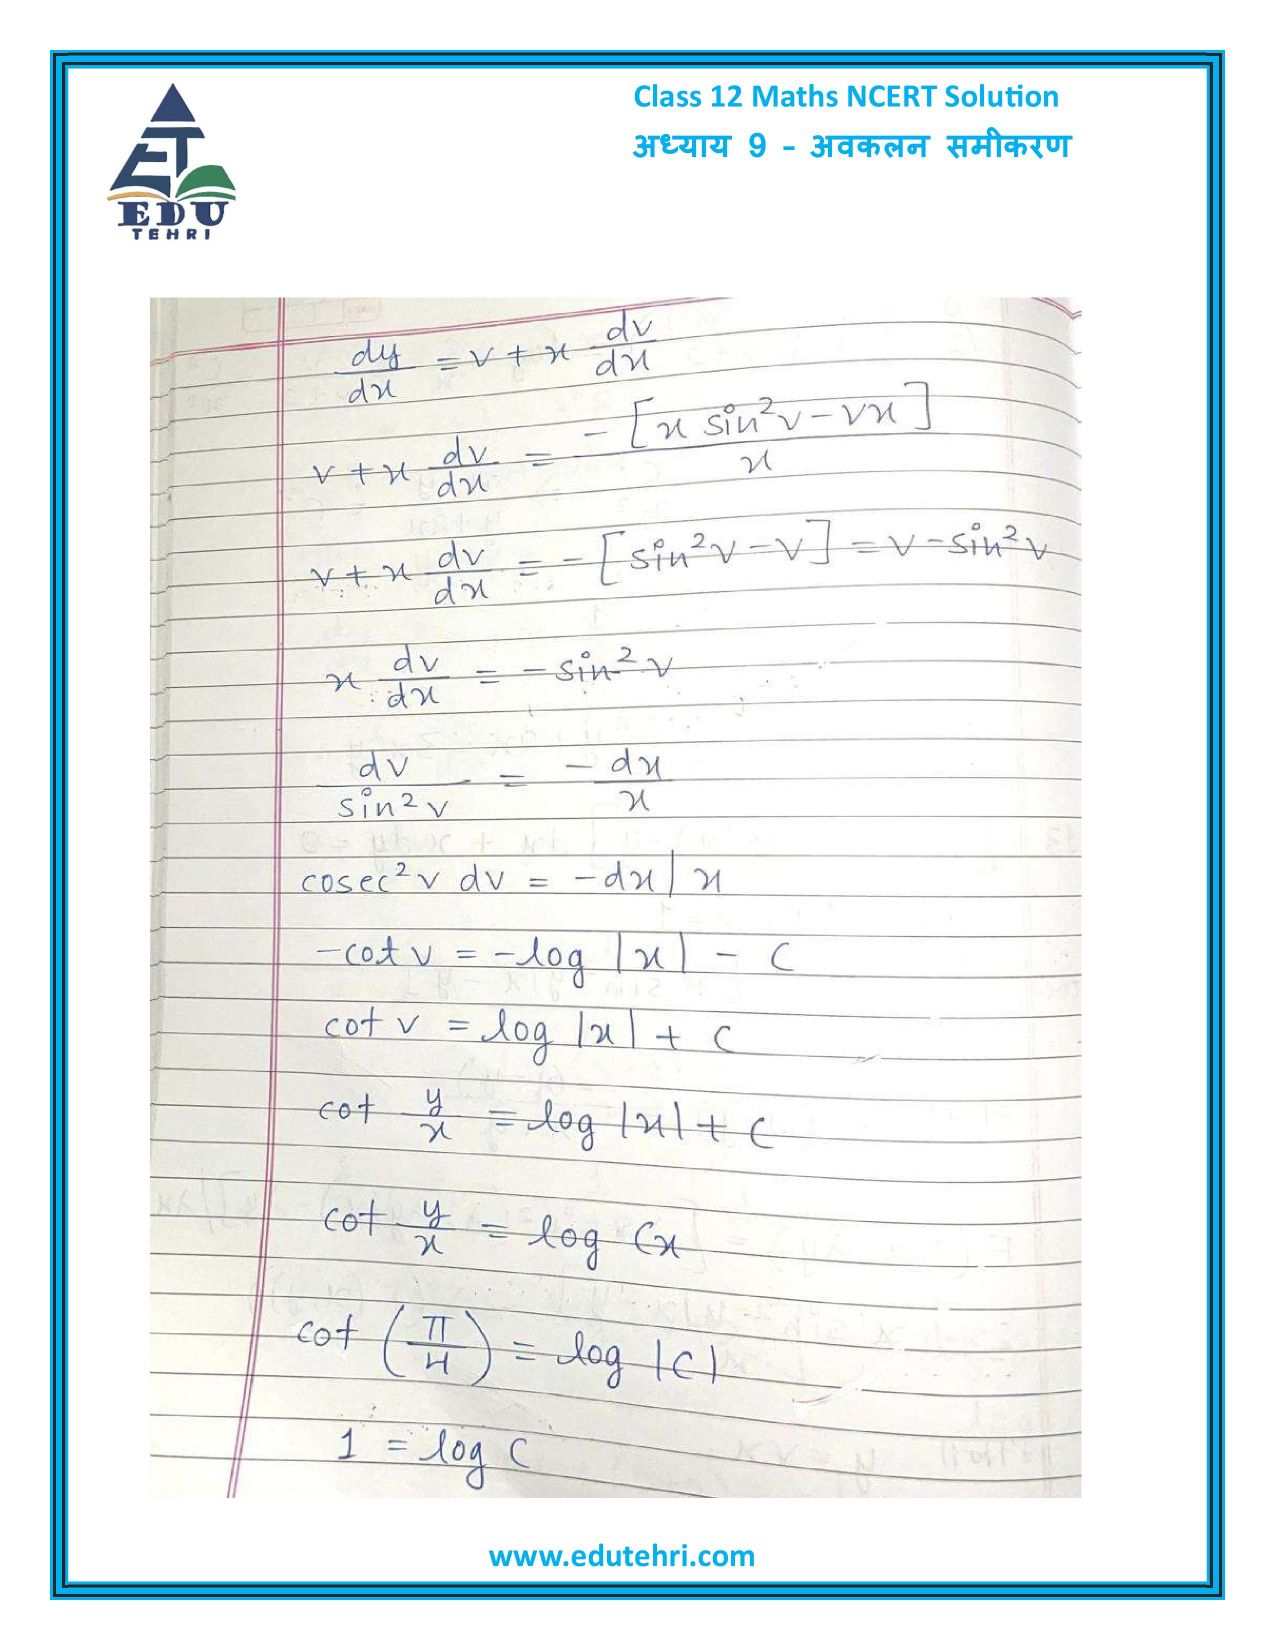 Class 12 Maths NCERT Solution
अध्याय 9 - अवकलन समीकरण
EDU
TEHRI
dy/dx = v + x dv/dx
v + x dv/dx = -[x sin²v - vx]/x
v + x dv/dx = -[sin²v - v] = v - sin²v
x dv/dx = -sin²v
dv/sin²v = -dx/x
cosec²v dv = -dx/x
-cot v = -log |x| - C
cot v = log |x| + C
cot y/x = log |x| + C
cot y/x = log Cx
cot (π/4) = log |C|
1 = log C
www.edutehri.com